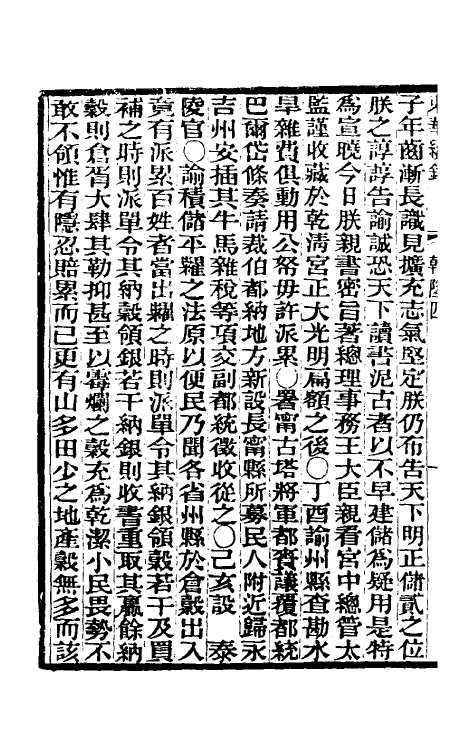 子年齒漸長識見擴充志氣堅定朕仍布告天下明正儲貳之位
朕之諄諄告諭誠恐天下讀書泥古者以不早建儲爲疑用是特
爲宣曉今日朕親書密旨著總理事務王大臣親看宮中總管太
監謹收藏於乾淸宮正大光明扁額之後〇丁酉諭州縣查勘水
旱雜費俱動用公帑毋許派累〇署甯古塔將軍都賚議覆都統
巴爾岱條奏請裁伯都納地方新設長甯縣所募民人附近歸永
吉州安插其牛馬雜稅等項交副都統徵收從之〇己亥設 泰
陵官〇諭積儲平糶之法原以便民乃聞各省州縣於倉穀出入
竟有派累百姓者當出糶之時則派單令其納銀領穀若干及買
補之時則派單令其納穀領銀若干納銀則收書重取其贏餘納
穀則倉胥大肆其勒抑甚至以霉爛之穀充爲乾潔小民畏勢不
敢不領惟有隱忍賠累而已更有山多田少之地產穀無多而該